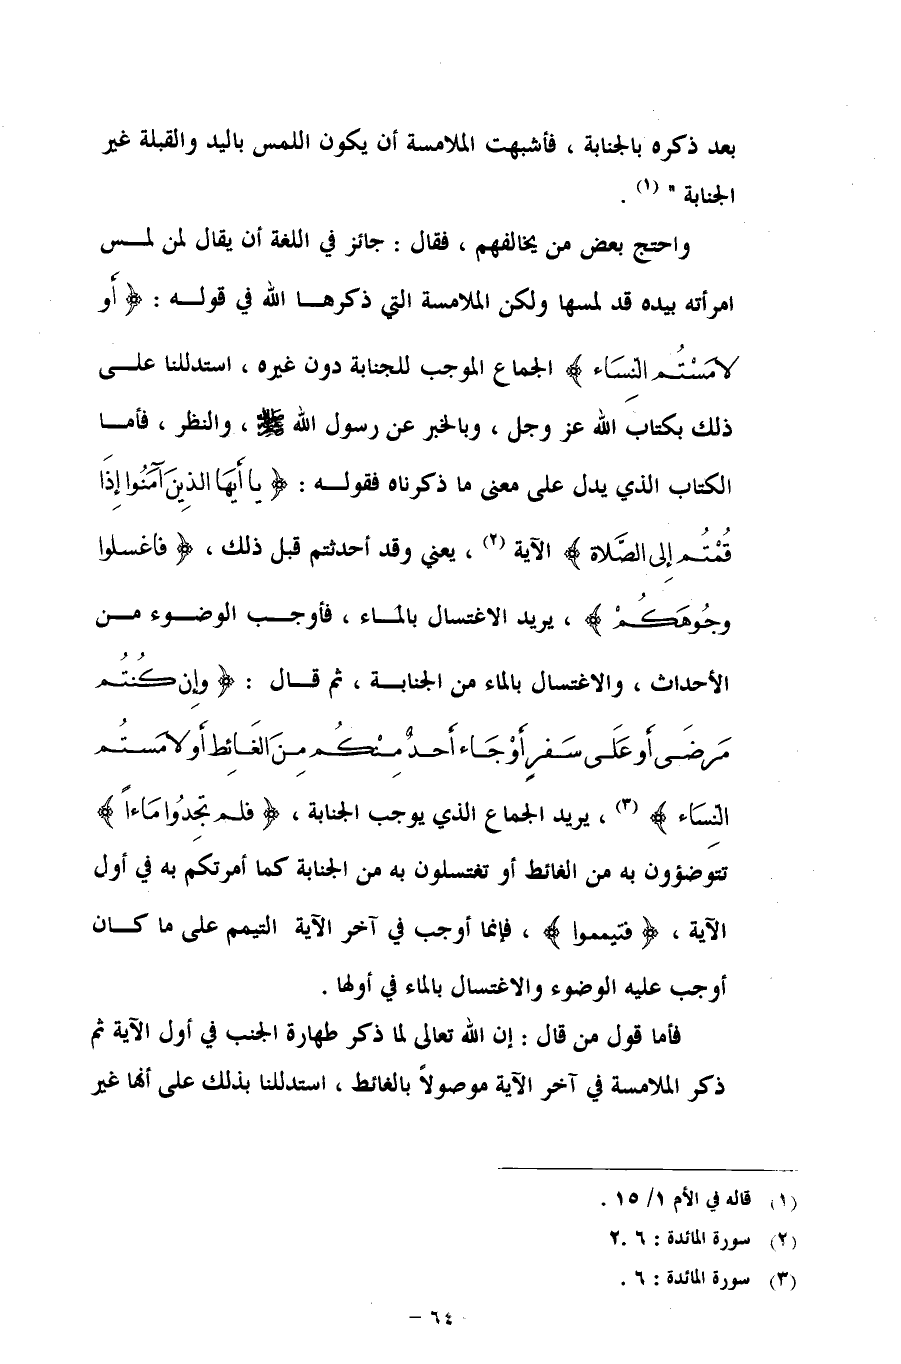 بعد ذكره بالجنابة ، فأشبهت الملامسة أن يكون اللمس باليد والقبلة غير
الجنابة " (١) .
واحتج بعض من يخالفهم ، فقال : جائز في اللغة أن يقال لمن لمــس
امرأته بيده قد لمسها ولكن الملامسة التي ذكرهــا الله في قولــه : ﴿ أَو
لامَسْتُم النِّسَاء ﴾ الجماع الموجب للجنابة دون غيره ، استدللنا علــى
ذلك بكتاب الله عز وجل ، وبالخبر عن رسول الله ﷺ ، والنظر ، فأمــا
الكتاب الذي يدل على معنى ما ذكرناه فقولــه : ﴿ يا أَيهَا الذِينَ آمَنُوا إِذَا
قُمْتُم إِلى الصَّلاة ﴾ الآية (٢) ، يعني وقد أحدثتم قبل ذلك ، ﴿ فاغسلوا
وجُوهَكُمْ ﴾ ، يريد الاغتسال بالمــاء ، فأوجــب الوضــوء مــن
الأحداث ، والاغتسال بالماء من الجنابــة ، ثم قــال : ﴿ وإِن كُنتُم
مَرضَى أَو عَلَى سَفرٍ أَوْ جَاء أَحدٌ مِنْكُم مِنَ الغَائطِ أَو لامَستُم
النِّسَاء ﴾ (٣) ، يريد الجماع الذي يوجب الجنابة ، ﴿ فلم تجِدُوا مَاءاً ﴾
تتوضؤون به من الغائط أو تغتسلون به من الجنابة كما أمرتكم به في أول
الآية ، ﴿ فتيمموا ﴾ ، فإنما أوجب في آخر الآية التيمم على ما كــان
أوجب عليه الوضوء والاغتسال بالماء في أولها .
فأما قول من قال : إن الله تعالى لما ذكر طهارة الجنب في أول الآية ثم
ذكر الملامسة في آخر الآية موصولاً بالغائط ، استدللنا بذلك على أنها غير
(١) قاله في الأم ١/ ١٥ .
(٢) سورة المائدة : ٦ .٢
(٣) سورة المائدة : ٦ .
- ٦٤ -